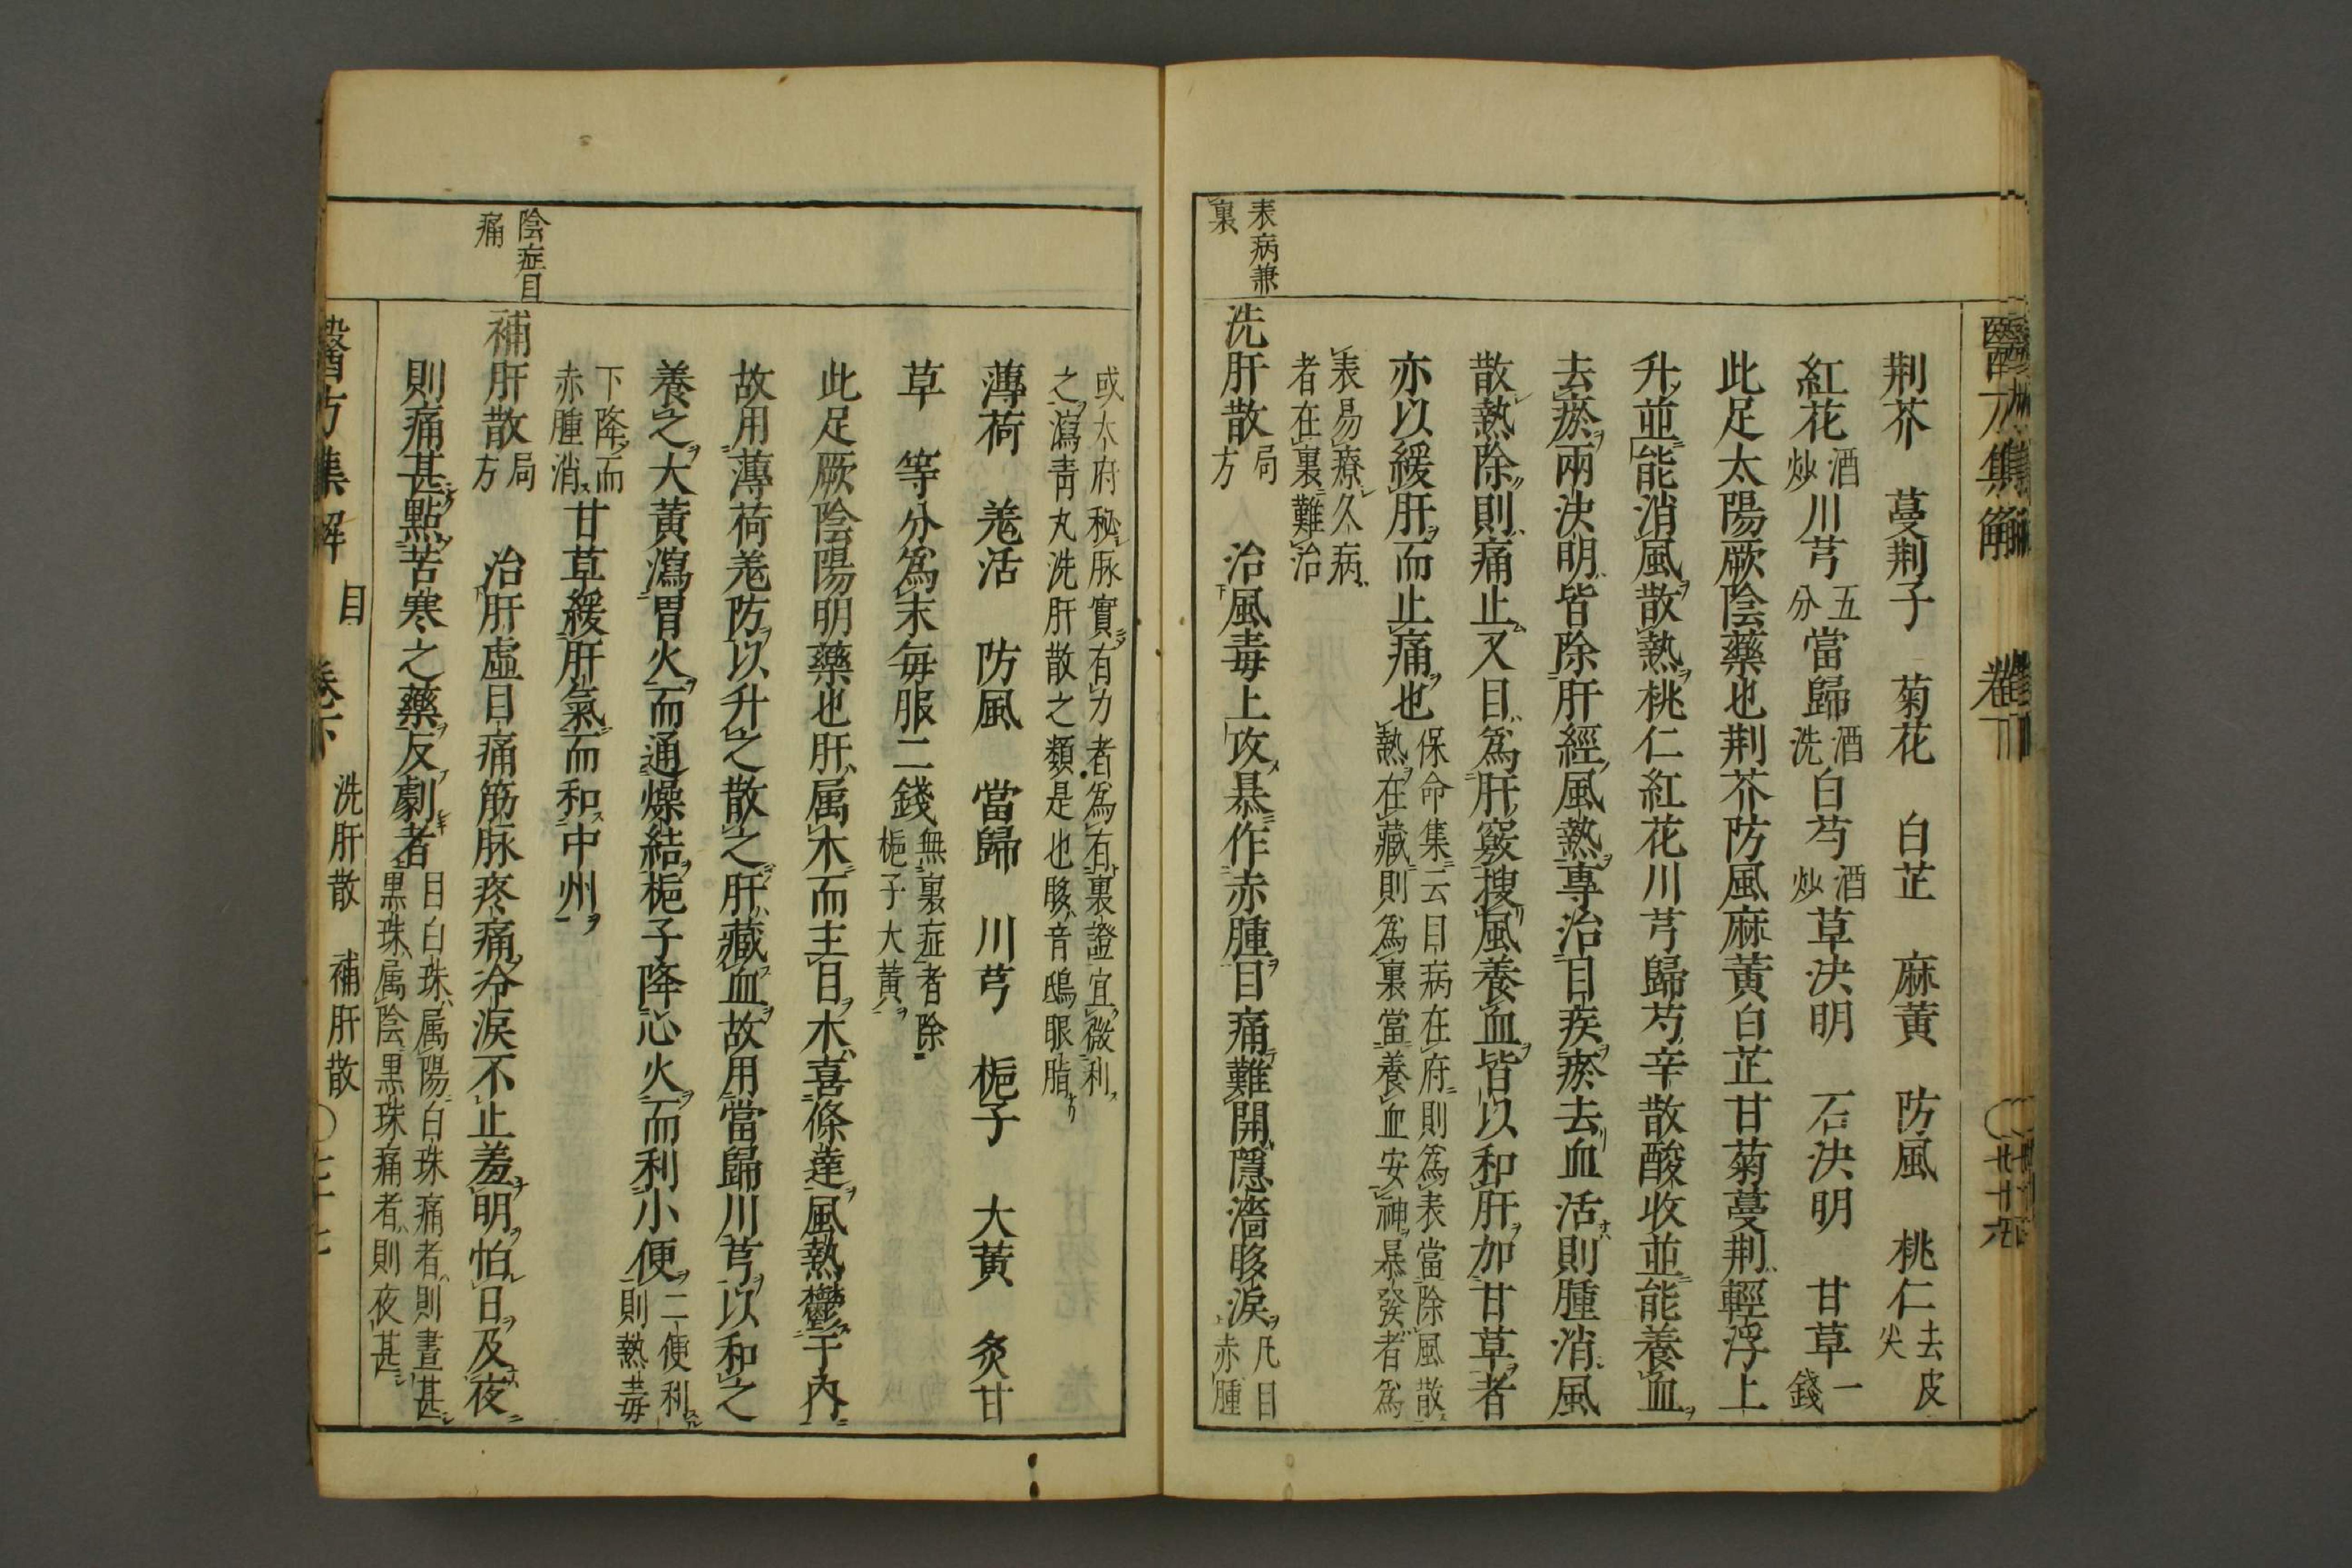 醫方集解　卷下
荆芥　蔓荆子　菊花　白芷　麻黃　防風　桃仁去皮尖
紅花酒炒川芎五分當歸酒洗白芍酒炒草決明　石決明　甘草一錢
此足太陽厥陰藥也荆芥防風麻黃白芷甘菊蔓荆輕浮上
升並能消風散熱桃仁紅花川芎歸芍辛散酸收並能養血
去瘀兩決明皆除肝經風熱專治目疾瘀去血活則腫消風
散熱除則痛止又目爲肝竅搜風養血皆以和肝加甘草者
亦以緩肝而止痛也保命集云目病在府則爲表當除風散熱在藏則爲裏當養血安神暴發者爲
表易療久病者在裏難治
表病兼裏
洗肝散局方　治風毒上攻暴作赤腫目痛難開隱濇眵淚凡目赤腫
或大府秘脉實有力者爲有裏證宜微利之瀉青丸洗肝散之類是也眵音鴟眼脂
薄荷　羗活　防風　當歸　川芎　梔子　大黃　炙甘
草　等分爲末每服二錢無裏症者除梔子大黃
此足厥陰陽明藥也肝属木而主目木喜條達風熱鬱于內
故用薄荷羗防以升之散之肝藏血故用當歸川芎以和之
養之大黃瀉胃火而通燥結梔子降心火而利小便二便利則熱毒
下降而赤腫消甘草緩肝氣而和中州
陰症目痛
補肝散局方　治肝虛目痛筋脉疼痛冷淚不止羞明怕日及夜
則痛甚點苦寒之藥反劇者目白珠属陽白珠痛者則晝甚黒珠属陰黒珠痛者則夜甚
醫方集解　目　卷下　洗肝散　補肝散　〇七十七